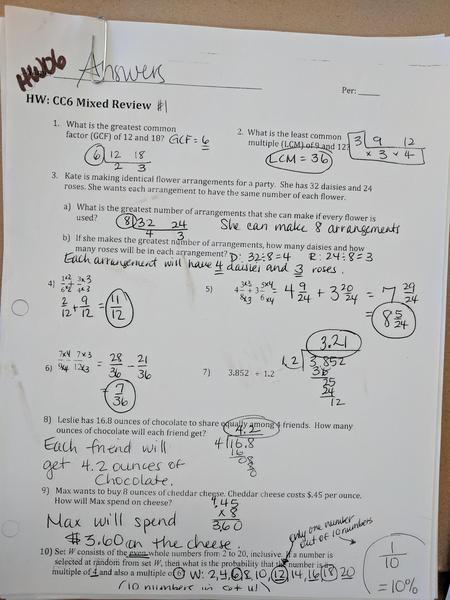 HW06
Answers
Per:
HW: CC6 Mixed Review #1
1. What is the greatest common
factor (GCF) of 12 and 18? GCF = 6
6 12 18
2 3
2. What is the least common
multiple (LCM) of 9 and 12?
3 9 12
× 3 × 4
LCM = 36
3. Kate is making identical flower arrangements for a party. She has 32 daisies and 24
roses. She wants each arrangement to have the same number of each flower.
a) What is the greatest number of arrangements that she can make if every flower is
used? 8 32 24 She can make 8 arrangements
4 3
b) If she makes the greatest number of arrangements, how many daisies and how
many roses will be in each arrangement? D: 32÷8=4 R: 24÷8=3
Each arrangement will have 4 daisies and 3 roses.
4) 1×2/6×2 + 3×3/4×3
2/12 + 9/12 = 11/12
5) 4 3×3/8×3 + 3 5×4/6×4 = 4 9/24 + 3 20/24 = 7 29/24
8 5/24
6) 7×4/9×4 - 7×3/12×3 = 28/36 - 21/36
= 7/36
7) 3.852 ÷ 1.2
3.21
1.2 3.852
36
25
24
12
8) Leslie has 16.8 ounces of chocolate to share equally among 4 friends. How many
ounces of chocolate will each friend get?
4.2
4 16.8
16
08
8
0
Each friend will
get 4.2 ounces of
chocolate.
9) Max wants to buy 8 ounces of cheddar cheese. Cheddar cheese costs $.45 per ounce.
How will Max spend on cheese?
.45
× 8
3.60
Max will spend
$3.60 on the cheese.
only one number
out of 10 numbers
10) Set W consists of the even whole numbers from 2 to 20, inclusive. If a number is
selected at random from set W, then what is the probability that the number is a
multiple of 4 and also a multiple of 6? W: 2, 4, 6, 8, 10, 12, 14, 16, 18, 20
(10 numbers in set W)
1/10
= 10%